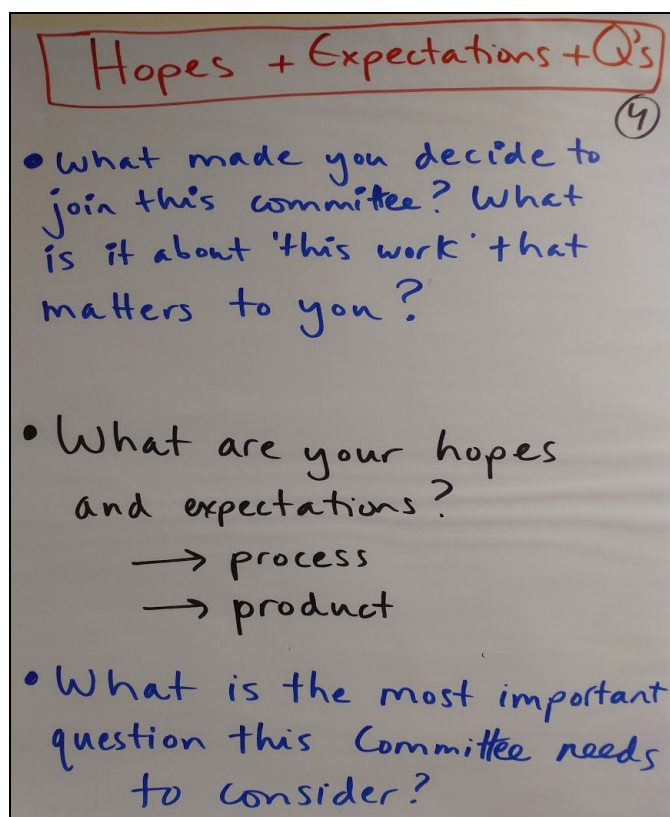 Hopes + Expectations + Q's
4
• What made you decide to
join this commitee? What
is it about 'this work' that
matters to you?
• What are your hopes
and expectations?
→ process
→ product
• What is the most important
question this Committee needs
to consider?